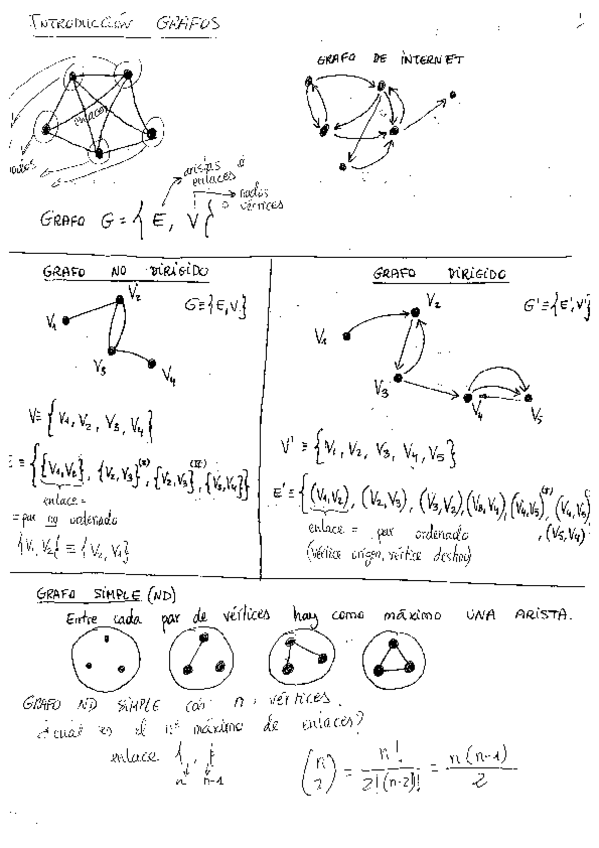 INTRODUCCIÓN GRAFOS
GRAFO DE INTERNET
enlaces
nodos
aristas o
enlaces
nodos
o vértices
GRAFO G = { E, V }
GRAFO NO DIRIGIDO
V₂
G≡{E,V}
V₁
V₃
V₄
V≡{V₁, V₂, V₃, V₄}
E ≡ {{V₁,V₂}, {V₂,V₃}⁽ᴵ⁾, {V₂,V₃}⁽ᴵᴵ⁾, {V₃,V₄}}
enlace =
= par no ordenado
{V₁,V₂} ≡ {V₂,V₁}
GRAFO DIRIGIDO
V₂
G'≡{E',V'}
V₁
V₃
V₄
V₅
V' ≡ {V₁, V₂, V₃, V₄, V₅}
E' ≡ {(V₁,V₂), (V₂,V₃), (V₃,V₂), (V₃,V₄), (V₄,V₅)⁽ᴵ⁾, (V₄,V₅)
, (V₅,V₄)
enlace = par ordenado
(vértice origen, vértice destino)
GRAFO SIMPLE (ND)
Entre cada par de vértices hay como máximo UNA ARISTA.
GRAFO ND SIMPLE con n vértices.
¿cuál es el nº máximo de enlaces?
enlace
n n-1
(n 2) = n! / 2!(n-2)! = n(n-1) / 2